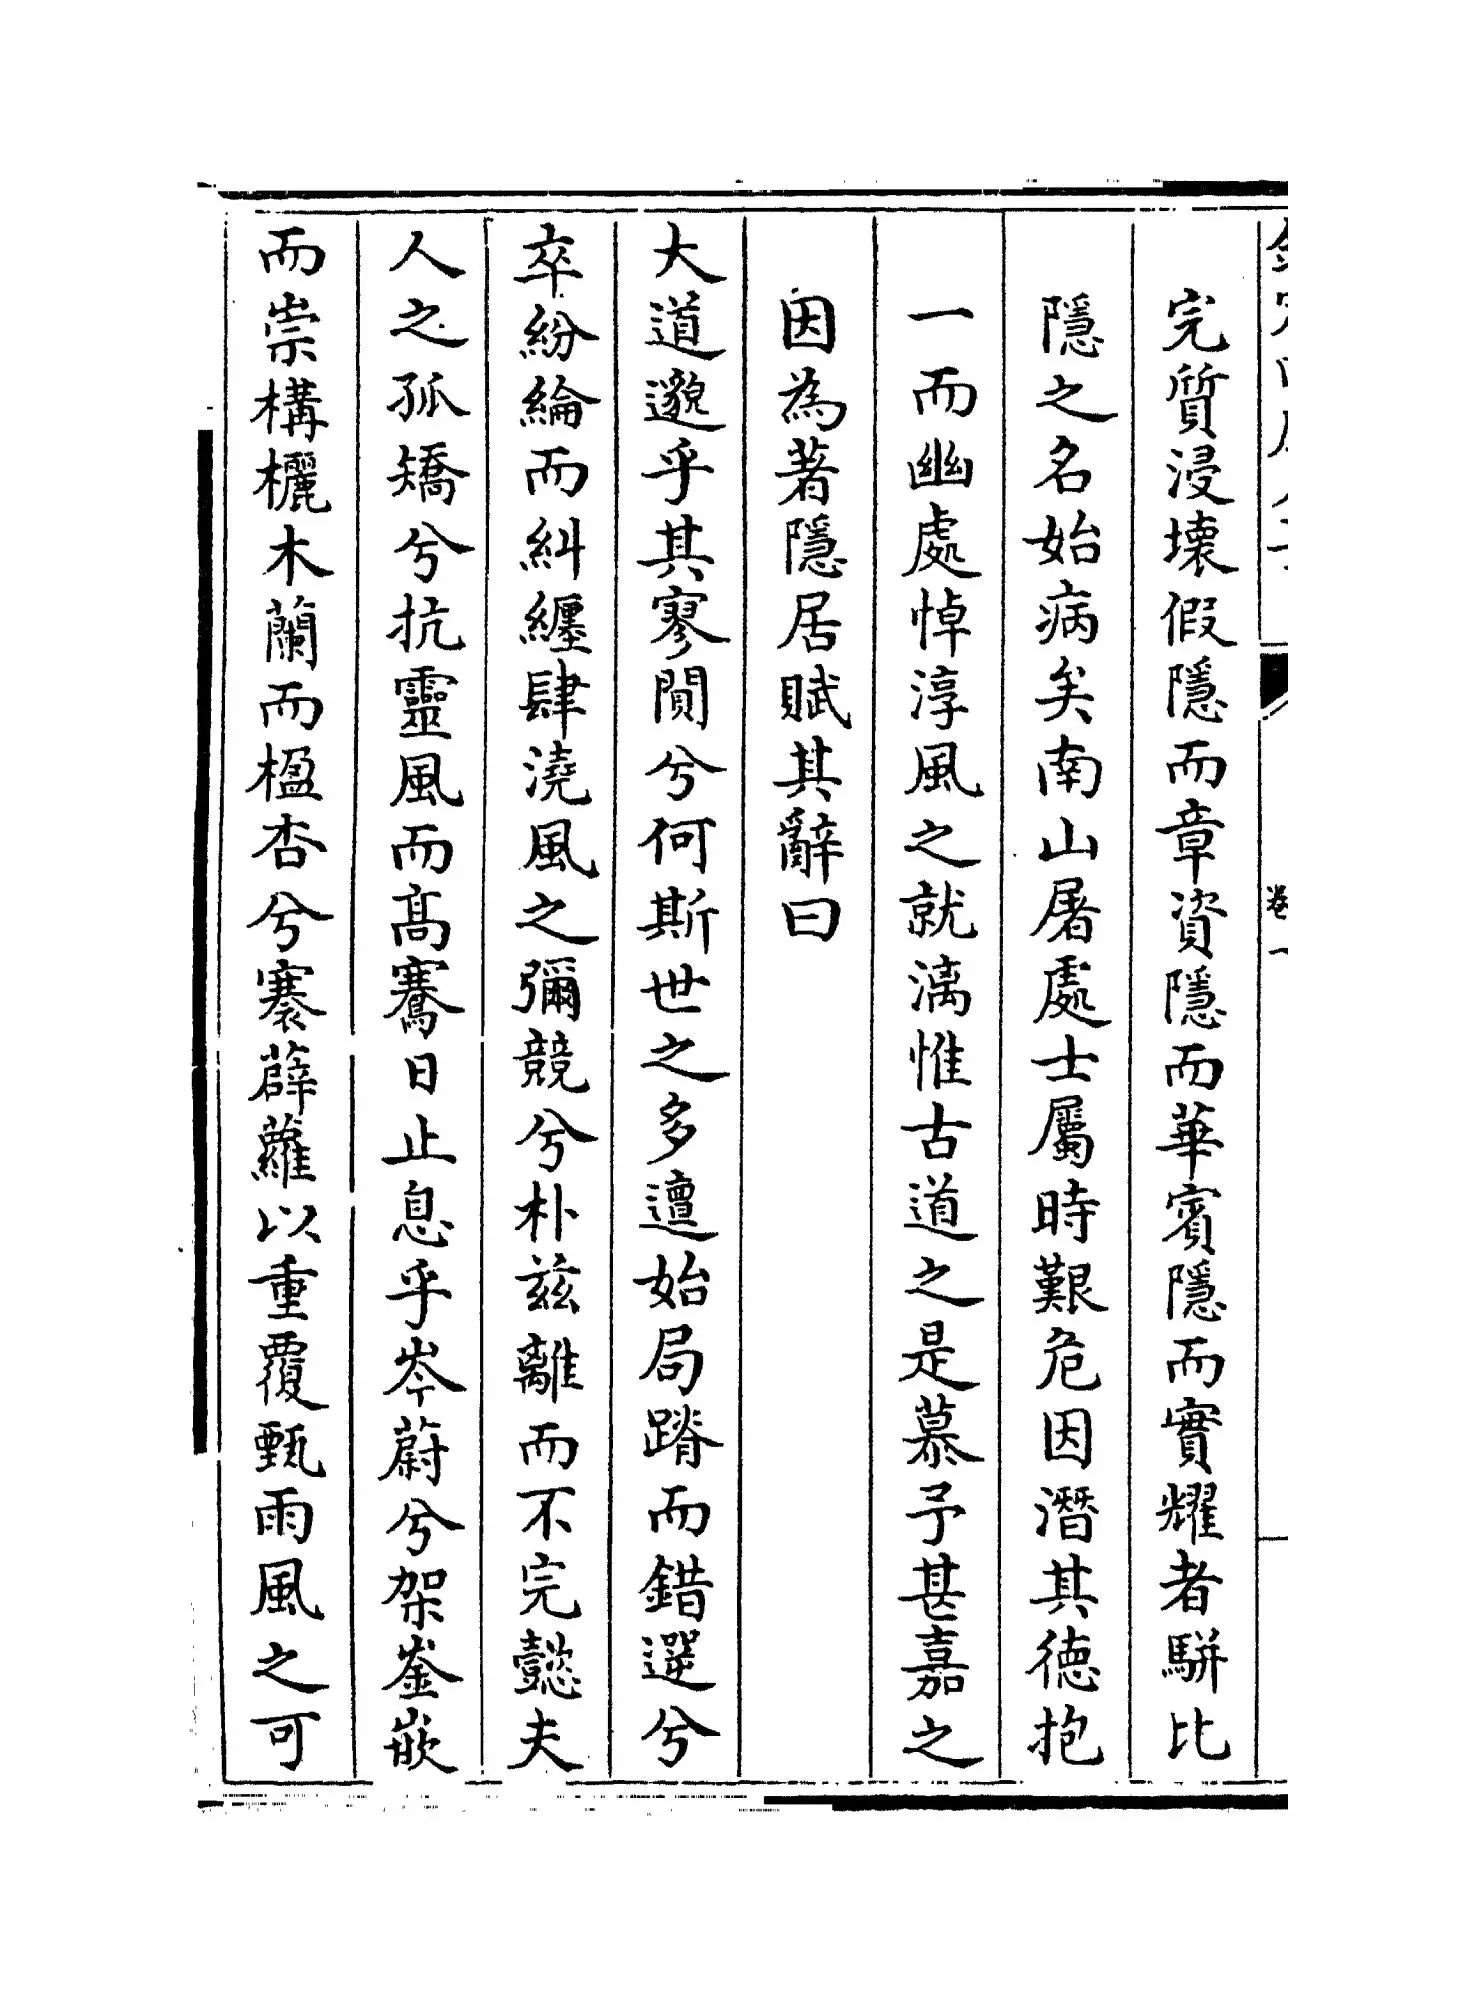 卷一
完質浸壞假隱而章資隱而華賓隱而實耀者駢比
隱之名始病矣南山屠處士屬時艱危因潛其徳抱
一而幽處悼淳風之就漓惟古道之是慕予甚嘉之
因為著隱居賦其辭曰
大道邈乎其寥閴兮何斯世之多邅始局蹐而錯遝兮
卒紛綸而糾纒肆澆風之彌競兮朴兹離而不完懿夫
人之孤矯兮抗靈風而高騫日止息乎岑蔚兮架崟嵌
而崇構欐木蘭而楹杏兮褰薜蘿以重覆甄雨風之可